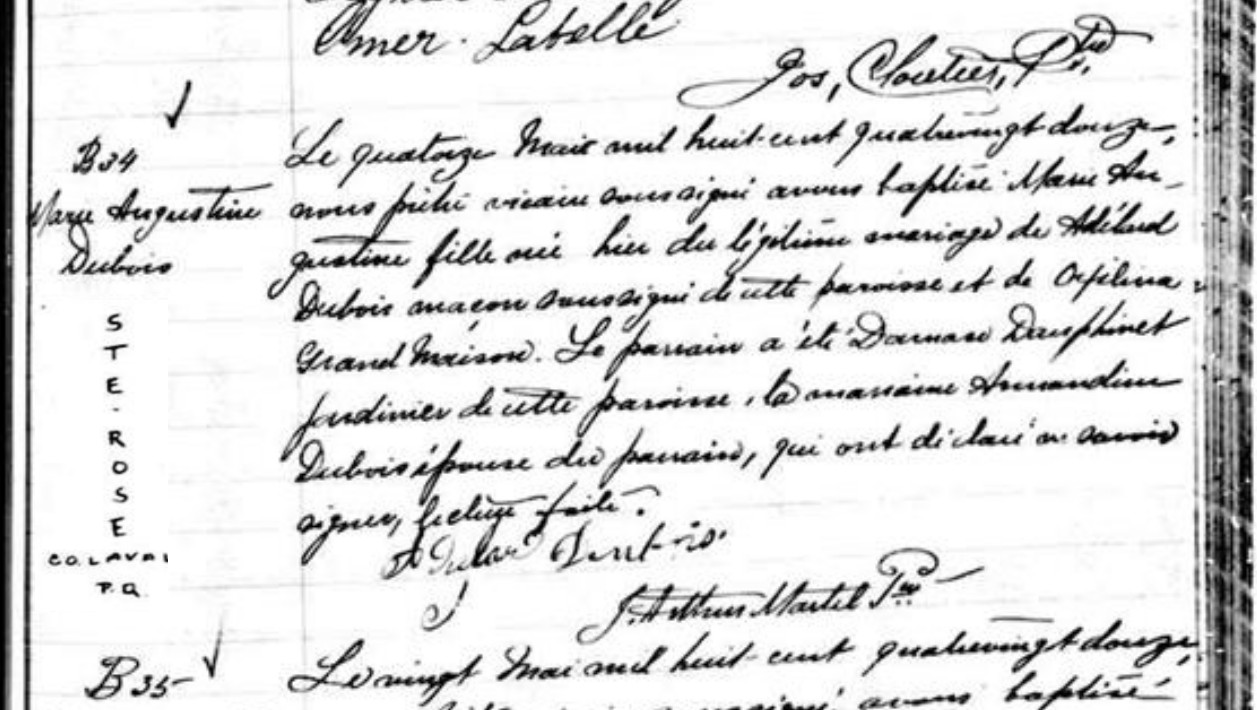 Omer. Labelle
Jos, Cloutier, Ptre
B34
Marie Augustine
Dubois
STE. ROSE
CO. LAVAL
P.Q
Le quatorze Mai mil huit-cent quatrevingt douze,
nous prêtre vicaire soussigné avons baptisé Marie Au-
gustine fille née hier du légitime mariage de Adélard
Dubois maçon soussigné de cette paroisse et de Orphelina
Grand'Maison. Le parrain a été Damase Dauphinet
jardinier de cette paroisse, la marraine Amandine
Dubois épouse du parrain, qui ont déclaré ne savoir
signer, lecture faite.
J. Arthur Martel Ptre
B35
Le vingt Mai mil huit-cent quatrevingt douze,
soussigné avons baptisé